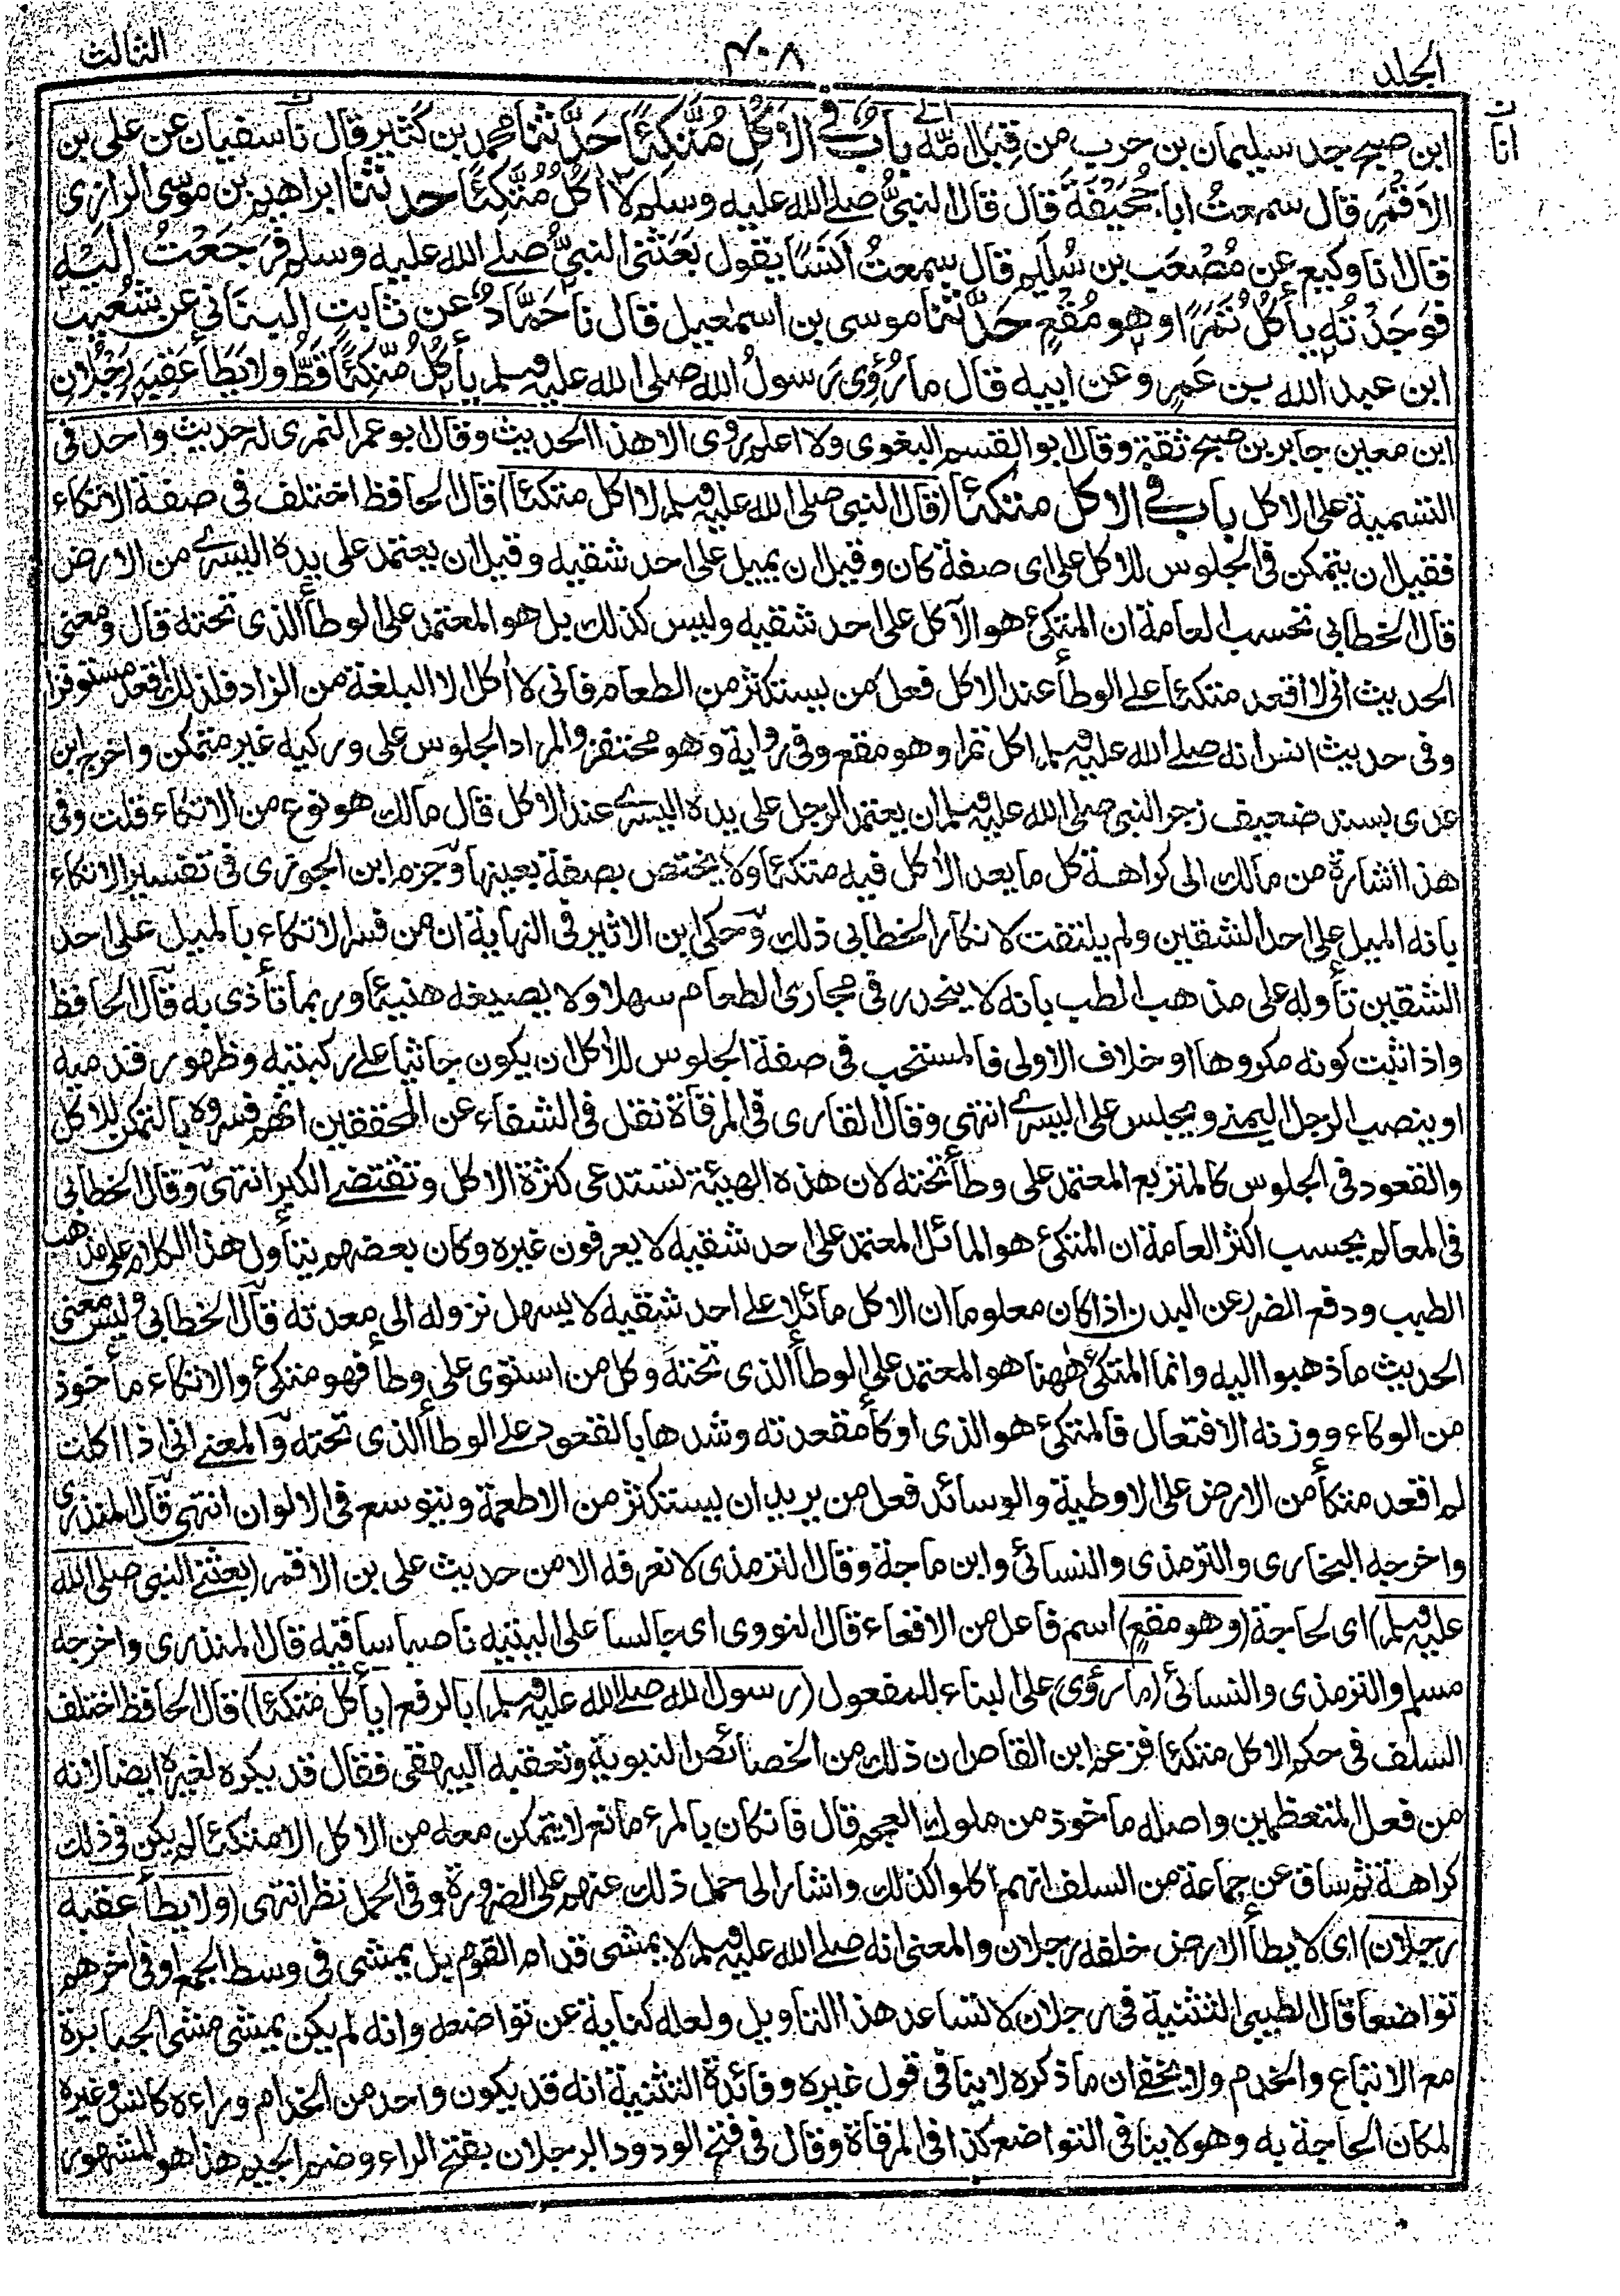 الجلد ٤٠٨ الثالث
ابن صبيح جد سليمان بن حرب من قبل امه باب في الاكل مُتَّكِئًا حَدَّثَنا محمد بن كثير قال نا سفيان عن على بن
الاَقْمَرِ قال سمعتُ ابا جُحَيْفَةَ قال قال النبيُّ صلے الله عليه وسلم لا اٰكُلُ مُتَّكِئًا حدثنا ابراهيم بن موسى الرازى
قال انا وكيع عن مُصْعَب بن سُلَيم قال سمعتُ اَنَسًا يقول بَعَثَنى النبيُّ صلے الله عليه وسلم فرَجَعْتُ اليْهِ
فوَجَدْتُه يأكُلُ تَمْرًا وهو مُقْعٍ حَدَّثَنا موسى بن اسمعيل قال نا حَمَّادٌ عن ثابت البنانى عن شُعيب
ابن عبد الله بن عَمرٍو عن ابيه قال ما رُؤِىَ رسولُ الله صلى الله عليه وسلم يأكُلُ مُتَّكِئًا قَطُّ ولا يَطَأ عَقِبَه رَجُلانِ
ابن معين جابر بن صبيح ثقة وقال ابو القسم البغوى ولا اعلم روى الا هذا الحديث وقال ابو عمر النمرى له حديث واحد فى
التسمية على الاكل باب في الاكل متكئا (قال النبى صلى الله عليه وسلم لا اكل متكئا) قال الحافظ اختلف فى صفة الاتكاء
فقيل ان يتمكن فى الجلوس للاكل على اى صفة كان وقيل ان يميل على احد شقيه وقيل ان يعتمد على يده اليسرے من الارض
قال الخطابى تحسب العامة ان المتكئ هو الآكل على احد شقيه وليس كذلك بل هو المعتمد على الوطأ الذى تحته قال ومعنى
الحديث انى لا اقعد متكئا علے الوطأ عند الاكل فعل من يستكثر من الطعام فانى لا اٰكل الا البلغة من الزاد فلذلك اقعد مستوفزا
وفى حديث انس انه صلے الله عليه وسلم اكل تمرا وهو مقع وفى رواية وهو محتفز والمراد الجلوس على وركيه غير متمكن واخرج ابن
عدى بسند ضعيف زجر النبى صلى الله عليه وسلم ان يعتمد الرجل على يده اليسرے عند الاكل قال مالك هو نوع من الاتكاء قلت وفى
هذا اشارة من مالك الى كراهة كل ما يعد الاٰكل فيه متكئا ولا يختص بصفة بعينها وجزم ابن الجوزى فى تفسير الاتكاء
بانه الميل على احد الشقين ولم يلتفت لانكار الخطابى ذلك وحكى ابن الاثير فى النهاية ان من فسر الاتكاء بالميل على احد
الشقين تأوله على مذهب الطب بانه لا ينحدر فى مجارى الطعام سهلا ولا يصيغه هنيئا وربما تأذى به قال الحافظ
واذا ثبت كونه مكروها او خلاف الاولى فالمستحب فى صفة الجلوس للاٰكل ان يكون جاثيا علے ركبتيه وظهور قدميه
او ينصب الرجل اليمنے ويجلس على اليسرے انتهى وقال القارى فى المرقاة نقل فى الشفاء عن المحققين انهم فسروه بالتمكن للاكل
والقعود فى الجلوس كالمتربع المعتمد على وطأ تحته لان هذه الهيئة تستدعى كثرة الاكل وتقتضے الكبر انتهى وقال الخطابى
فى المعالم يحسب اكثر العامة ان المتكئ هو المائل المعتمد على احد شقيه لا يعرفون غيره وكان بعضهم يتأول هذا الكلام على مذهب
الطب ودفع الضرر عن البدن اذ كان معلوما ان الاكل مائلا علے احد شقيه لا يسهل نزوله الى معدته قال الخطابى وليس معنى
الحديث ما ذهبوا اليه وانما المتكئ ههنا هو المعتمد على الوطأ الذى تحته وكل من استوى على وطأ فهو متكئ والاتكاء مأخوذ
من الوكاء ووزنه الافتعال فالمتكئ هو الذى اوكأ مقعدته وشدها بالقعود علے الوطأ الذى تحته والمعنے انى اذا اكلت
لم اقعد متكأ من الارض على الاوطية والوسائد فعل من يريد ان يستكثر من الاطعمة ويتوسع فى الالوان انتهى قال المنذرى
واخرجه البخارى والترمذى والنسائى وابن ماجة وقال الترمذى لا نعرفه الا من حديث على بن الاقمر (بعثنے النبى صلى الله
عليه وسلم) اى لحاجة (وهو مقعٍ) اسم فاعل من الاقعاء قال النووى اى جالسا على اليتيه ناصبا ساقيه قال المنذرى واخرجه
مسلم والترمذى والنسائى (ما رؤى) على البناء للمفعول (رسول الله صلے الله عليه وسلم) بالرفع (يأكل متكئا) قال الحافظ اختلف
السلف فى حكم الاكل متكئا فزعم ابن القاص ان ذلك من الخصائص النبوية وتعقبه البيهقى فقال قد يكره لغيره ايضا لانه
من فعل المتعظمين واصله ماخوذ من ملوك العجم قال فان كان بالمرء مانع لا يتمكن معه من الاكل الا متكئا لم يكن فى ذلك
كراهة ثم ساق عن جماعة من السلف انهم اكلوا كذلك واشار الى حمل ذلك عنهم على الضرورة وفى الحمل نظر انتهى (ولا يطأ عقبه
رجلان) اى لا يطأ الارض خلفه رجلان والمعنى انه صلے الله عليه وسلم لا يمشى قدام القوم بل يمشى فى وسط الجمع او فى اٰخرهم
تواضعا قال الطيبى التثنية فى رجلان لا تساعد هذا التاويل ولعله كناية عن تواضعه وانه لم يكن يمشى مشى الجبابرة
مع الاتباع والخدم ولا يخفے ان ما ذكره لا ينافى قول غيره وفائدة التثنية انه قد يكون واحد من الخدام وراءه كانس وغيره
لمكان الحاجة به وهو لا ينافى التواضع كذا فى المرقاة وقال فى فتح الودود الرجلان بفتح الراء وضم الجيم هذا هو المشهور